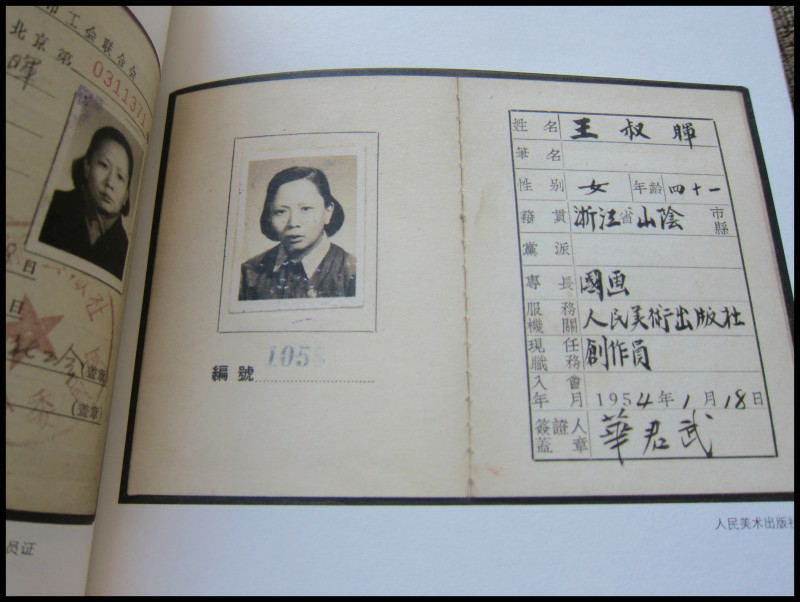 市工会联合会
北京第
0311371
暉
日
日
社
会(盖章)
(盖章)
委
员证
編號 105
姓名 王叔暉
筆名
性别 女 年齡 四十一
籍貫 浙江省山陰 市縣
黨派
專長 國画
服務機關 人民美術出版社
現任職務 創作員
入會年月 1954年1月18日
簽證人蓋章 華君武
人民美术出版社